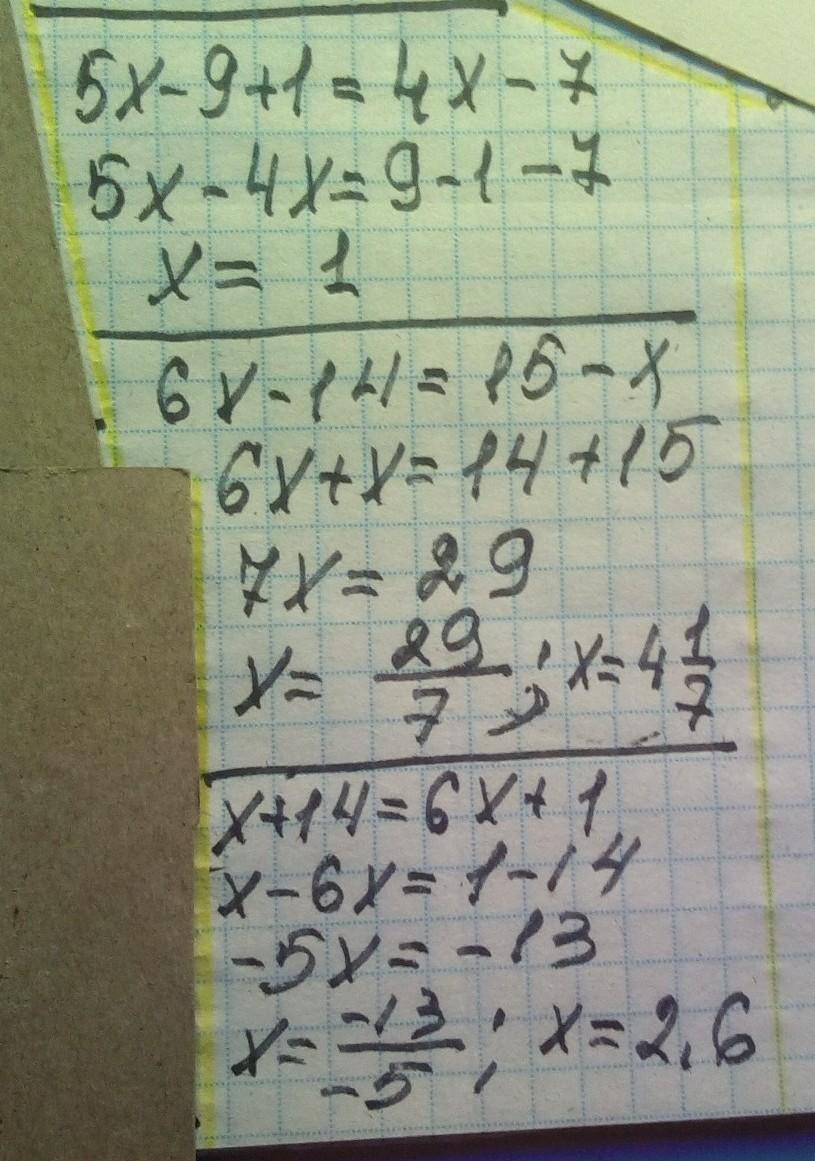 5x-9+1=4x-7
5x-4x=9-1-7
x= 1
6x-14=15-x
6x+x=14+15
7x=29
x= 29/7 ; x=4 1/7
x+14=6x+1
x-6x=1-14
-5x=-13
x= -13/-5 ; x=2,6